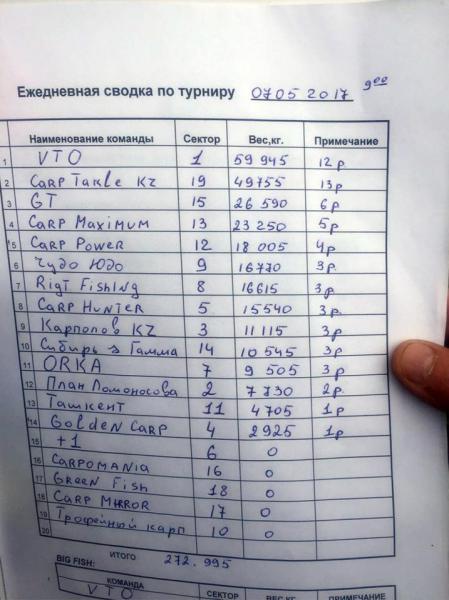 Ежедневная сводка по турниру 07.05 2017 9 00
Наименование команды Сектор Вес,кг. Примечание
1 VTO 1 59 945 12 р
2 CARP TAKLE KZ 19 49755 13 р
3 GT 15 26 590 6 р
4 CARP MAXIMUM 13 23 250 5 р
5 CARP POWER 12 18 005 4 р
6 Чудо Юдо 9 16770 3 р
7 RIGT FISHING 8 16615 3 р
8 CARP HUNTER 5 15540 3 р
9 Карполов KZ 3 11 115 3 р
10 Сибирь з Гамма 14 10 545 3 р
11 ORKA 7 9 505 3 р
12 План Ломоносова 2 7 730 2 р
13 Ташкент 11 4 705 1 р
14 GOLDEN CARP 4 2925 1 р
15 +1 6 0
16 CARPOMANIA 16 0
17 GREEN FISH 18 0
18 CARP MIRROR 17 0
19 Трофейный карп 10 0
20
ИТОГО 272.995
BIG FISH:
КОМАНДА СЕКТОР ВЕС,КГ. ПРИМЕЧАНИЕ
VTO